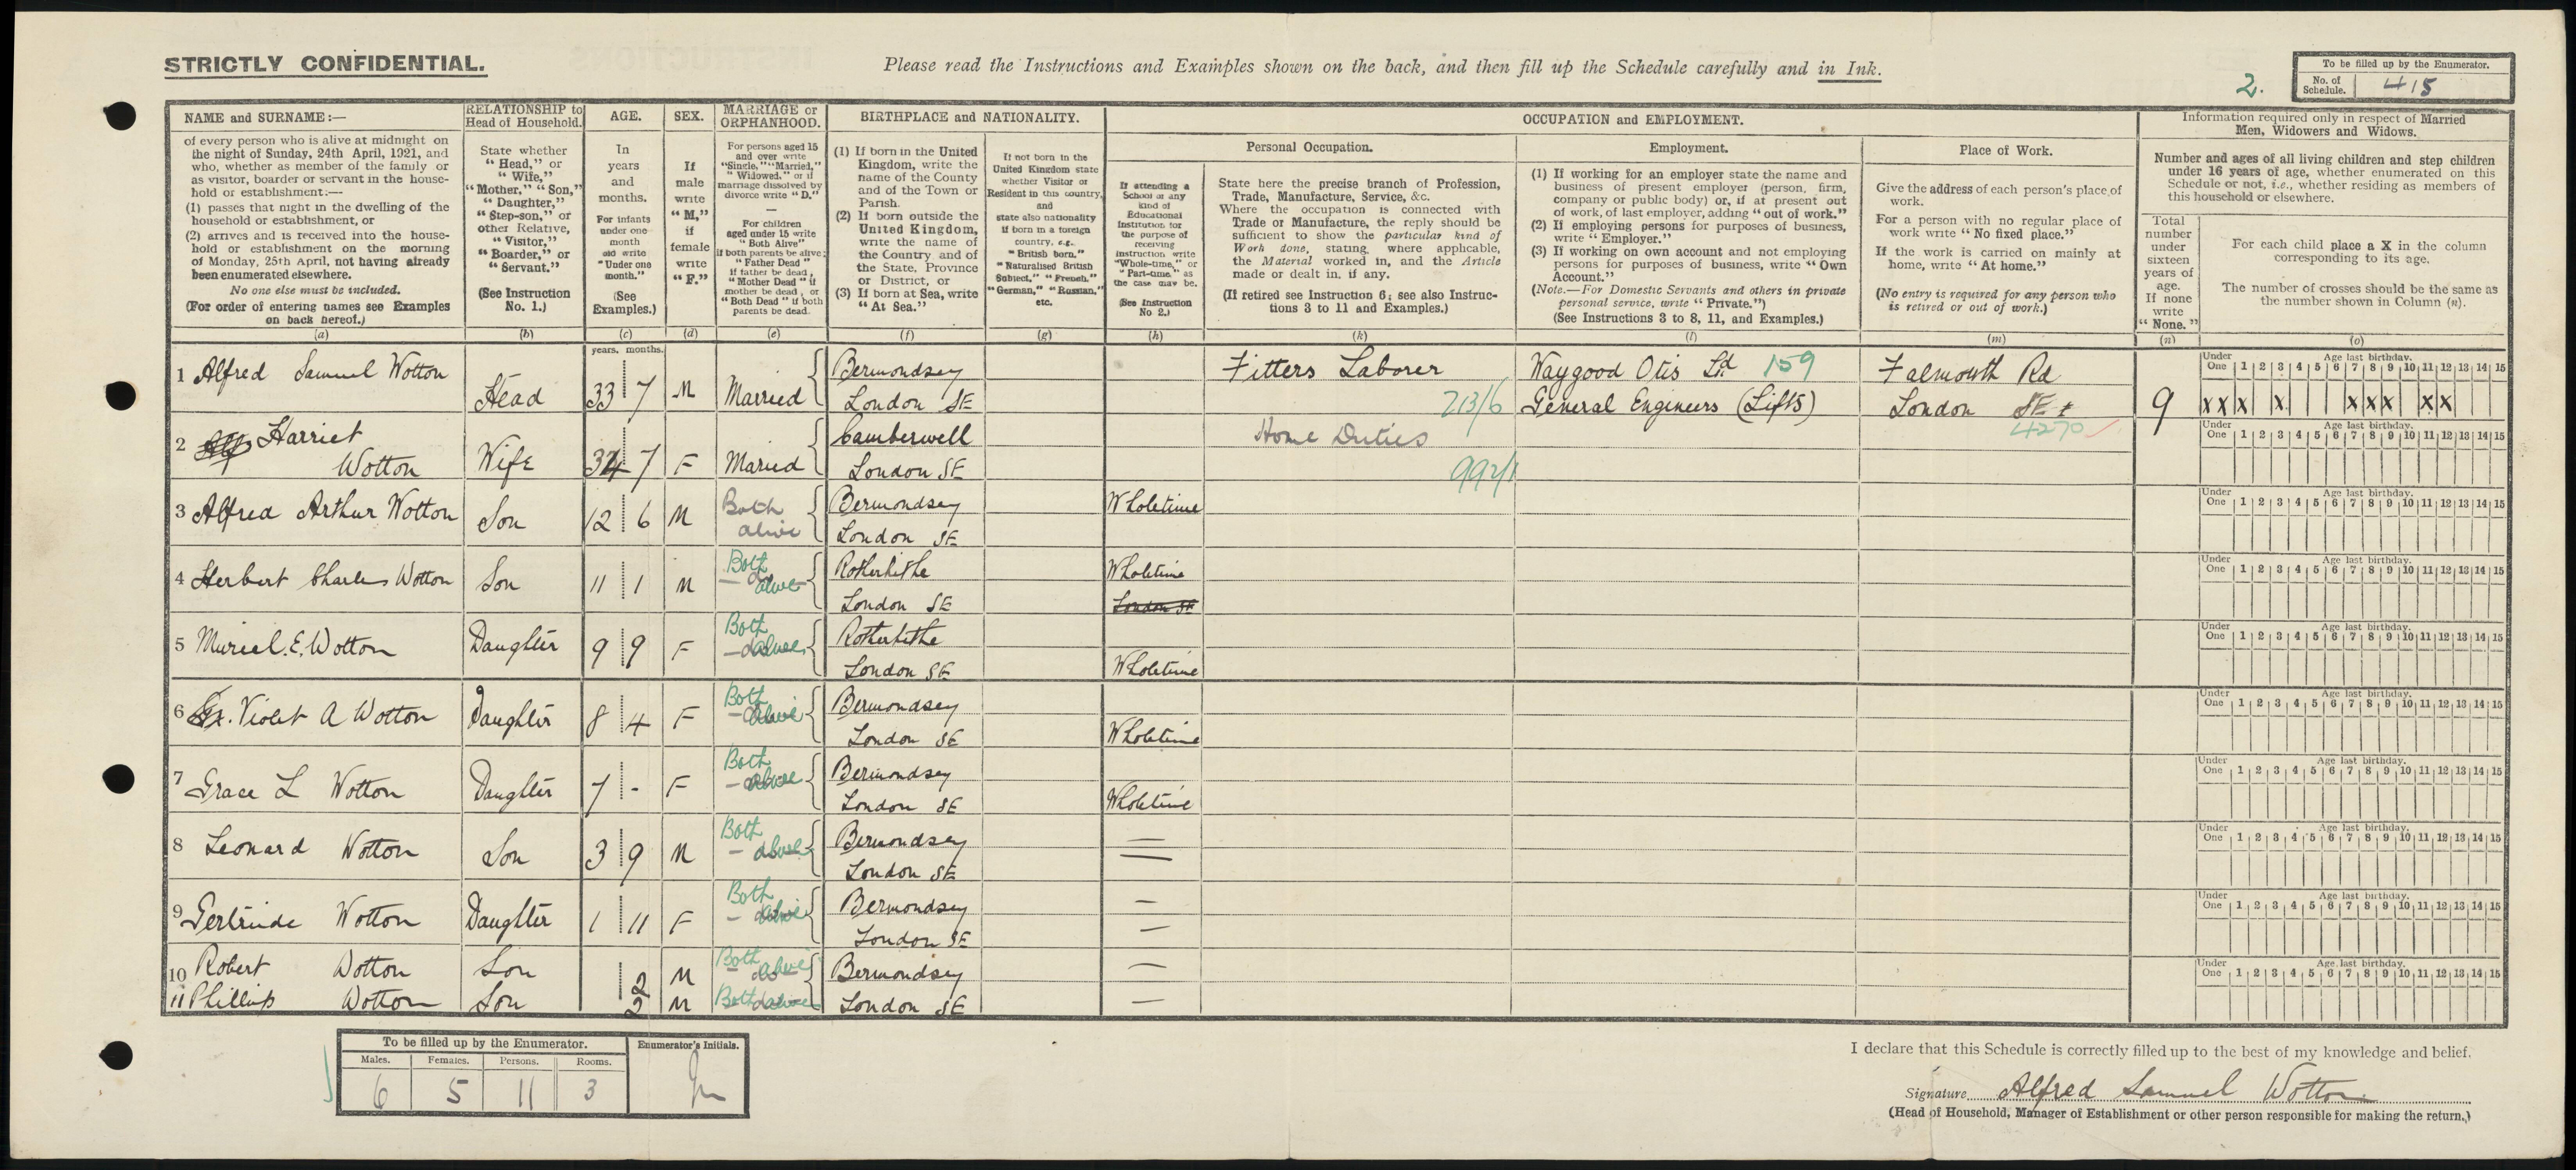 STRICTLY CONFIDENTIAL.
Please read the Instructions and Examples shown on the back, and then fill up the Schedule carefully and in Ink.
2.
To be filled up by the Enumerator.
No. of Schedule. 415
NAME and SURNAME:—
of every person who is alive at midnight on
the night of Sunday, 24th April, 1921, and
who, whether as member of the family or
as visitor, boarder or servant in the house-
hold or establishment:—
(1) passes that night in the dwelling of the
household or establishment, or
(2) arrives and is received into the house-
hold or establishment on the morning
of Monday, 25th April, not having already
been enumerated elsewhere.
No one else must be included.
(For order of entering names see Examples
on back hereof.)
(a)
RELATIONSHIP to
Head of Household.
State whether
"Head," or
"Wife,"
"Mother," "Son,"
"Daughter,"
"Step-son," or
other Relative,
"Visitor,"
"Boarder," or
"Servant."
(See Instruction
No. 1.)
(b)
AGE.
In
years
and
months.
For infants
under one
month
old write
"Under one
month."
(See
Examples.)
(c)
SEX.
If
male
write
"M,"
if
female
write
"F."
(d)
MARRIAGE or
ORPHANHOOD.
For persons aged 15
and over write
"Single," "Married,"
"Widowed," or if
marriage dissolved by
divorce write "D."
—
For children
aged under 15 write
"Both Alive"
if both parents be alive;
"Father Dead"
if father be dead,
"Mother Dead" if
mother be dead, or
"Both Dead" if both
parents be dead.
(e)
BIRTHPLACE and NATIONALITY.
(1) If born in the United
Kingdom, write the
name of the County
and of the Town or
Parish.
(2) If born outside the
United Kingdom,
write the name of
the Country and of
the State, Province
or District, or
(3) If born at Sea, write
"At Sea."
(f)
If not born in the
United Kingdom state
whether Visitor or
Resident in this country,
and
state also nationality
if born in a foreign
country, e.g.,
"British born,"
"Naturalised British
Subject," "French,"
"German," "Russian,"
etc.
(g)
OCCUPATION and EMPLOYMENT.
If attending a
School or any
kind of
Educational
Institution for
the purpose of
receiving
instruction write
"Whole-time," or
"Part-time," as
the case may be.
(See Instruction
No 2.)
(h)
Personal Occupation.
State here the precise branch of Profession,
Trade, Manufacture, Service, &c.
Where the occupation is connected with
Trade or Manufacture, the reply should be
sufficient to show the particular kind of
Work done, stating, where applicable,
the Material worked in, and the Article
made or dealt in, if any.
(If retired see Instruction 6; see also Instruc-
tions 3 to 11 and Examples.)
(k)
Employment.
(1) If working for an employer state the name and
business of present employer (person, firm,
company or public body) or, if at present out
of work, of last employer, adding "out of work."
(2) If employing persons for purposes of business,
write "Employer."
(3) If working on own account and not employing
persons for purposes of business, write "Own
Account."
(Note.—For Domestic Servants and others in private
personal service, write "Private.")
(See Instructions 3 to 8, 11, and Examples.)
(l)
Place of Work.
Give the address of each person's place of
work.
For a person with no regular place of
work write "No fixed place."
If the work is carried on mainly at
home, write "At home."
(No entry is required for any person who
is retired or out of work.)
(m)
Information required only in respect of Married
Men, Widowers and Widows.
Number and ages of all living children and step children
under 16 years of age, whether enumerated on this
Schedule or not, i.e., whether residing as members of
this household or elsewhere.
Total
number
under
sixteen
years of
age.
If none
write
"None."
(n)
For each child place a X in the column
corresponding to its age.
The number of crosses should be the same as
the number shown in Column (n).
(o)
years. months.
1 Alfred Samuel Wotton Head 33 7 M Married Bermondsey London SE Fitters Laborer 213/6 Waygood Otis Ltd 159 General Engineers (Lifts) Falmouth Rd London SE 4270 9 X X X X X X X X X
Under One 1 2 3 4 5 6 7 8 9 10 11 12 13 14 15
Age last birthday.
2 Harriet Wotton Wife 34 7 F Maried Camberwell London SE Home Duties 992/1
Under One 1 2 3 4 5 6 7 8 9 10 11 12 13 14 15
Age last birthday.
3 Alfred Arthur Wotton Son 12 6 M Both alive Bermondsey London SE Wholetime
Under One 1 2 3 4 5 6 7 8 9 10 11 12 13 14 15
Age last birthday.
4 Herbert Charles Wotton Son 11 1 M Both alive Rotherhithe London SE Wholetime London SE
Under One 1 2 3 4 5 6 7 8 9 10 11 12 13 14 15
Age last birthday.
5 Muriel. E. Wotton Daughter 9 9 F Both alive Rotherhithe London SE Wholetime
Under One 1 2 3 4 5 6 7 8 9 10 11 12 13 14 15
Age last birthday.
6 Violet A Wotton Daughter 8 4 F Both alive Bermondsey London SE Wholetime
Under One 1 2 3 4 5 6 7 8 9 10 11 12 13 14 15
Age last birthday.
7 Grace L Wotton Daughter 7 - F Both alive Bermondsey London SE Wholetime
Under One 1 2 3 4 5 6 7 8 9 10 11 12 13 14 15
Age last birthday.
8 Leonard Wotton Son 3 9 M Both alive Bermondsey London SE
Under One 1 2 3 4 5 6 7 8 9 10 11 12 13 14 15
Age last birthday.
9 Gertrude Wotton Daughter 1 11 F Both alive Bermondsey London SE
Under One 1 2 3 4 5 6 7 8 9 10 11 12 13 14 15
Age last birthday.
10 Robert Wotton Son 2 M Both alive Bermondsey
11 Phillip Wotton Son 2 M Both alive London SE
Under One 1 2 3 4 5 6 7 8 9 10 11 12 13 14 15
Age last birthday.
To be filled up by the Enumerator.
Males. Females. Persons. Rooms.
6 5 11 3
Enumerator's Initials.
I declare that this Schedule is correctly filled up to the best of my knowledge and belief.
Signature Alfred Samuel Wotton
(Head of Household, Manager of Establishment or other person responsible for making the return.)